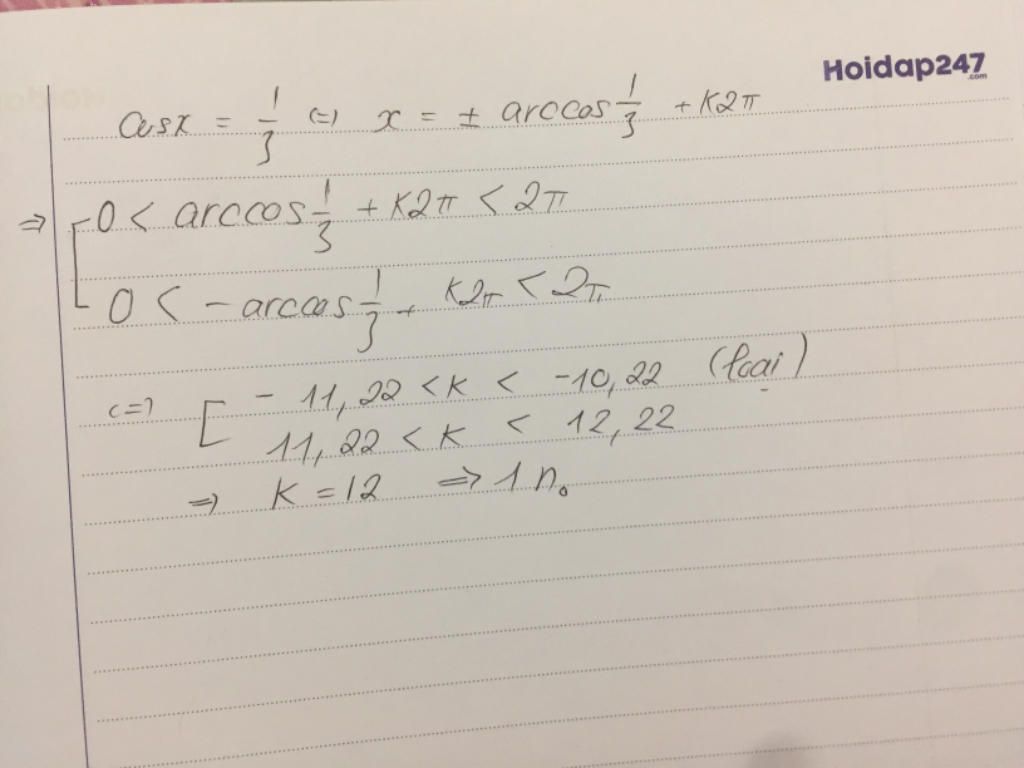 Hoidap247
.com
cosx = 1/3 (=) x = ± arccos 1/3 + K2π
=> [ 0 < arccos 1/3 + K2π < 2π
0 < - arccos 1/3 + K2π < 2π
<=> [ - 11,22 < K < -10,22 (loại)
11,22 < K < 12,22
=> K = 12 => 1 no